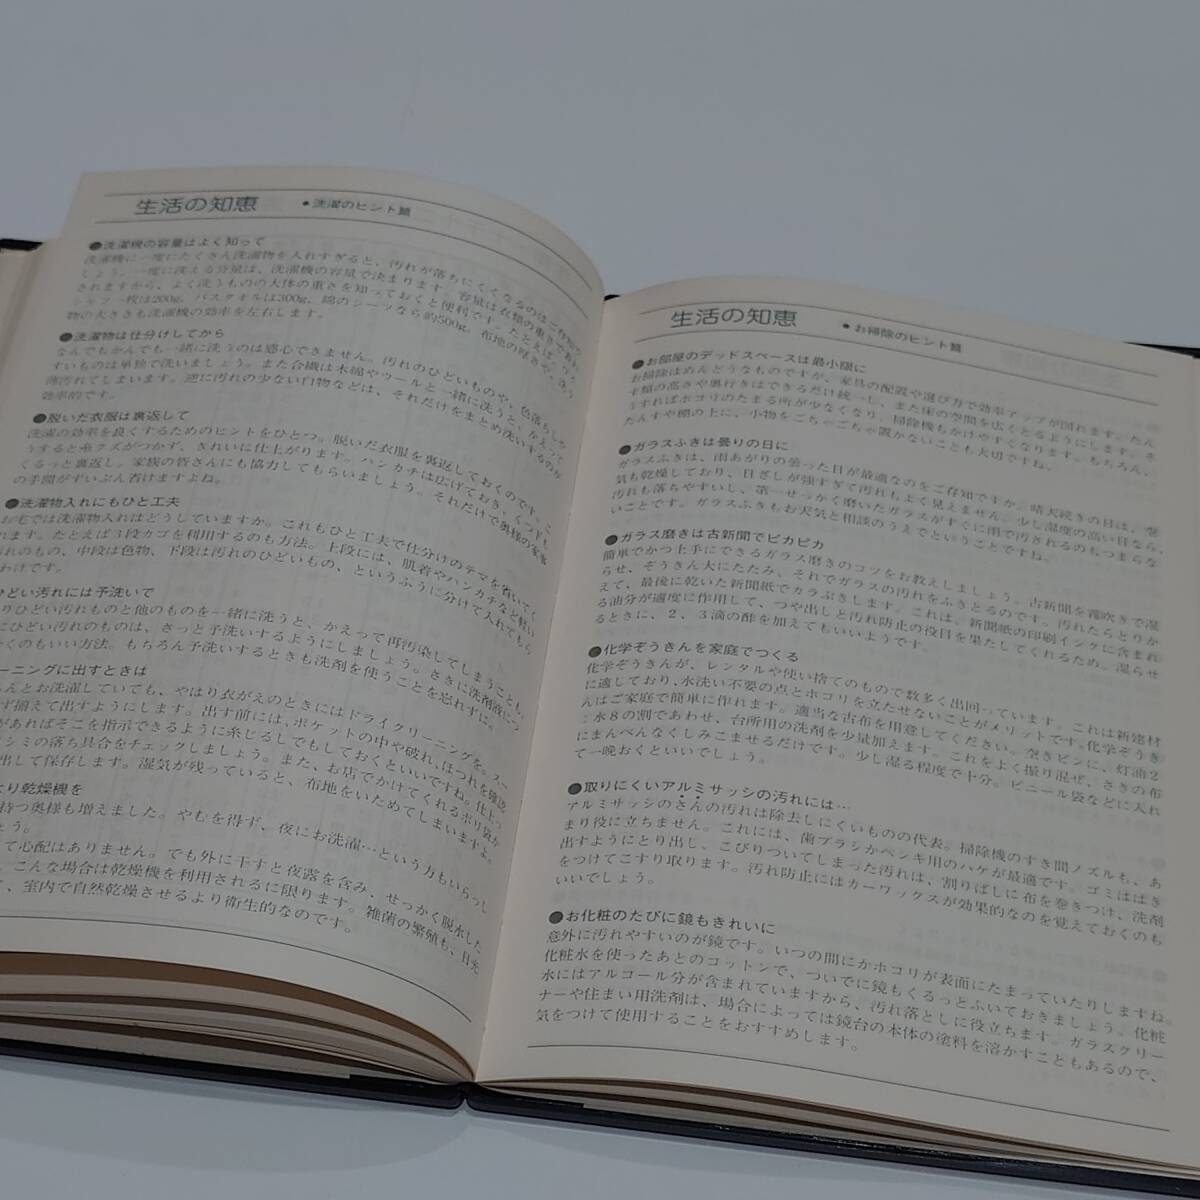 生活の知恵 ●洗濯のヒント篇
●洗濯機の容量はよく知って
洗濯機に一度にたくさん洗濯物を入れすぎると、汚れが落ちにくくなるのはご存知で
しょう。一度に洗える分量は、洗濯機の容量で決まります。容量は衣類の重さで表わ
されますから、よく洗うものの大体の重さを知っておくと便利です。たとえば、Yシ
ャツ一枚は200g、バスタオルは300g、綿のシーツなら約500g。布地の厚みや、洗う
物の大きさも洗濯機の効率を左右します。
●洗濯物は仕分けしてから
なんでもかんでも一緒に洗うのは感心できません。汚れのひどいものや、色落ちしや
すいものは単独で洗いましょう。また合繊は木綿やウールと一緒に洗うと、かえって
薄汚れてしまいます。逆に汚れの少ない白物などは、それだけをまとめ洗いするのが
効率的です。
●脱いだ衣服は裏返して
洗濯の効率を良くするためのヒントをひとつ。脱いだ衣服を裏返しておくのです。こ
うすると糸クズがつかず、きれいに仕上がります。ハンカチは広げておき、くつ下も
くるっと裏返し。家族の皆さんにも協力してもらいましょう。それだけで奥様の家事
の手間がずいぶん省けますよね。
●洗濯物入れにもひと工夫
お宅では洗濯物入れはどうしていますか。これもひと工夫で仕分けのテマを省いてく
れます。たとえば3段カゴを利用するのも方法。上段には、肌着やハンカチなど軽い
汚れのもの、中段は色物、下段は汚れのひどいもの、というふうに分けて入れてもら
わけです。
ひどい汚れには予洗いで
りひどい汚れものと他のものを一緒に洗うと、かえって再汚染してしまうことも。
にひどい汚れのものは、さっと予洗いするようにしましょう。さきに洗剤液につ
くのもいい方法。もちろん予洗いするときも洗剤を使うことを忘れずに。
ーニングに出すときは
んとお洗濯していても、やはり衣がえのときにはドライクリーニングを。スー
ず揃えて出すようにします。出す前には、ポケットの中や破れ、ほつれを確認
があればそこを指示できるように糸じるしでもしておくといいですね。仕上っ
シミの落ち具合をチェックしましょう。また、お店でかけてくれるポリ袋か
出して保存します。湿気が残っていると、布地をいためてしまいますよ。
より乾燥機を
持つ奥様も増えました。やむを得ず、夜にお洗濯…という方もいらっし
ょう。
て心配はありません。でも外に干すと夜露を含み、せっかく脱水した
。こんな場合は乾燥機を利用されるに限ります。雑菌の繁殖も、日光
、室内で自然乾燥させるより衛生的なのです。
生活の知恵 ●お掃除のヒント篇
●お部屋のデッドスペースは最小限に
お掃除はめんどうなものですが、家具の配置や選び方で効率アップが図れます。たん
す類の高さや奥行きはできるだけ統一し、また床の空間を広くとるようにします。そ
うすればホコリのたまる所が少なくなり、掃除機もかけやすくなります。もちろん、
たんすや棚の上に、小物をごちゃごちゃ置かないことも大切ですね。
●ガラスふきは曇りの日に
ガラスふきは、雨あがりの曇った日が最適なのをご存知ですか。晴天続きの日は、空
気も乾燥しており、日ざしが強すぎて汚れもよく見えません。少し湿度の高い日なら、
汚れも落ちやすいし、第一せっかく磨いたガラスがすぐに雨で汚されるのもつまらな
いことです。ガラスふきもお天気と相談のうえでということですね。
●ガラス磨きは古新聞でピカピカ
簡単でかつ上手にできるガラス磨きのコツをお教えしましょう。古新聞を霧吹きで湿
らせ、ぞうきん大にたたみ、それでガラスの汚れをふきとるのです。汚れたらとりか
えて、最後に乾いた新聞紙でカラぶきします。これは、新聞紙の印刷インクに含まれ
る油分が適度に作用して、つや出しと汚れ防止の役目を果たしてくれるため。湿らせ
るときに、2、3滴の酢を加えてもいいようです。
●化学ぞうきんを家庭でつくる
化学ぞうきんが、レンタルや使い捨てのもので数多く出回っています。これは新建材
に適しており、水洗い不要の点とホコリを立たせないことがメリットです。化学ぞうき
んはご家庭で簡単に作れます。適当な古布を用意してください。空きビンに、灯油2
：水8の割であわせ、台所用の洗剤を少量加えます。これをよく振り混ぜ、さきの布
にまんべんなくしみこませるだけです。少し湿る程度で十分。ビニール袋などに入れ
て一晩おくといいでしょう。
●取りにくいアルミサッシの汚れには…
アルミサッシのさんの汚れは除去しにくいものの代表。掃除機のすき間ノズルも、あ
まり役に立ちません。これには、歯ブラシかペンキ用のハケが最適です。ゴミははき
出すようにとり出し、こびりついてしまった汚れは、割りばしに布を巻きつけ、洗剤
をつけてこすり取ります。汚れ防止にはカーワックスが効果的なのを覚えておくのも
いいでしょう。
●お化粧のたびに鏡もきれいに
意外に汚れやすいのが鏡です。いつの間にかホコリが表面にたまっていたりしますね。
化粧水を使ったあとのコットンで、ついでに鏡もくるっとふいておきましょう。化粧
水にはアルコール分が含まれていますから、汚れ落としに役立ちます。ガラスクリー
ナーや住まい用洗剤は、場合によっては鏡台の本体の塗料を溶かすこともあるので、
気をつけて使用することをおすすめします。